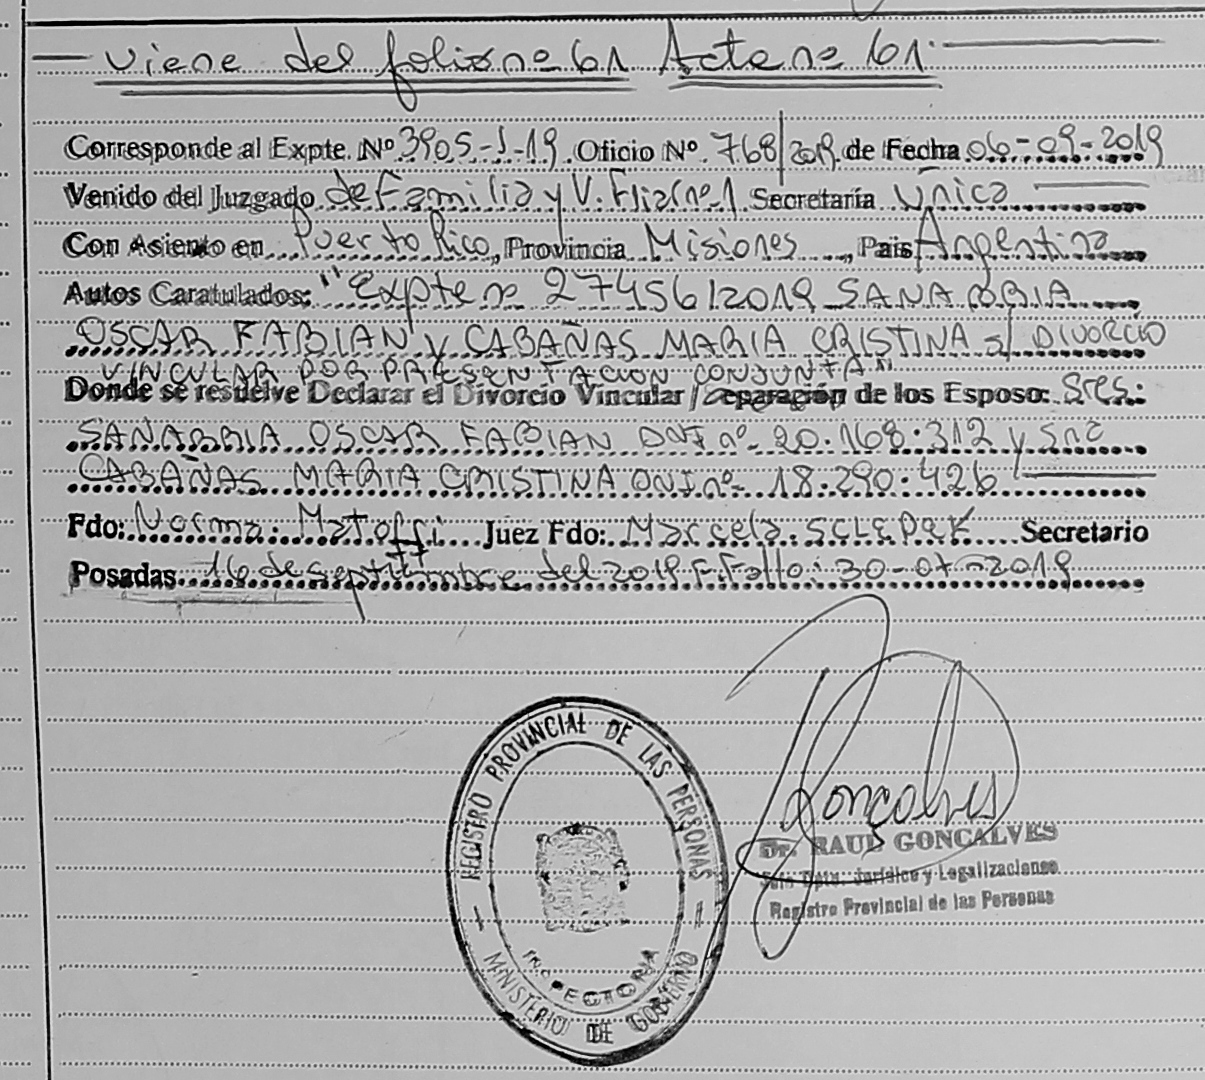 viene del folio nº 61 Acta nº 61.
Corresponde al Expte. Nº 3905-J-19 Oficio Nº 768/2019 de Fecha 06-09-2019
Venido del Juzgado de Familia y V. Fliar nº 1 Secretaría Única
Con Asiento en Puerto Rico, Provincia Misiones, Pais Argentina
Autos Caratulados: "Expte nº 27456/2019 SANABRIA
OSCAR FABIAN y CABAÑAS MARIA CRISTINA s/ DIVORCIO
VINCULAR POR PRESENTACION CONJUNTA"
Donde se resuelve Declarar el Divorcio Vincular / separación de los Esposo: Sres:
SANABRIA OSCAR FABIAN DNI nº 20.168.312 y Sra
CABAÑAS MARIA CRISTINA DNI nº 18.290.426
Fdo: Norma. Matoffi Juez Fdo: Marcela. SCLEPEK Secretario
Posadas 16 de septiembre del 2019. F. Fallo: 30-07-2019
REGISTRO PROVINCIAL DE LAS PERSONAS
INSPECTORIA
MINISTERIO DE GOBIERNO
Gonçalves
Dr. RAUL GONCALVES
Jurídico y Legalizaciones
Registro Provincial de las Personas